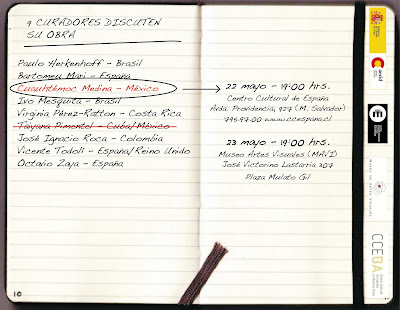 9 CURADORES DISCUTEN
SU OBRA
Paulo Herkenhoff - Brasil
Bartomeu Mari - España
Cuauhtémoc Medina - México
Ivo Mesquita - Brasil
Virginia Pérez-Ratton - Costa Rica
Taiyana Pimentel - Cuba/México
José Ignacio Roca - Colombia
Vicente Todolí - España/Reino Unido
Octavio Zaya - España
22 mayo - 19:00 hrs.
Centro Cultural de España
Avda. Providencia, 927 (M. Salvador)
79597-00 www.ccespana.cl
23 mayo - 19:00 hrs.
Museo Artes Visuales (MAVI)
José Victorino Lastarria 307
Plaza Mulato Gil
10
aecid
MUSEO DE ARTES VISUALES
CCEBA